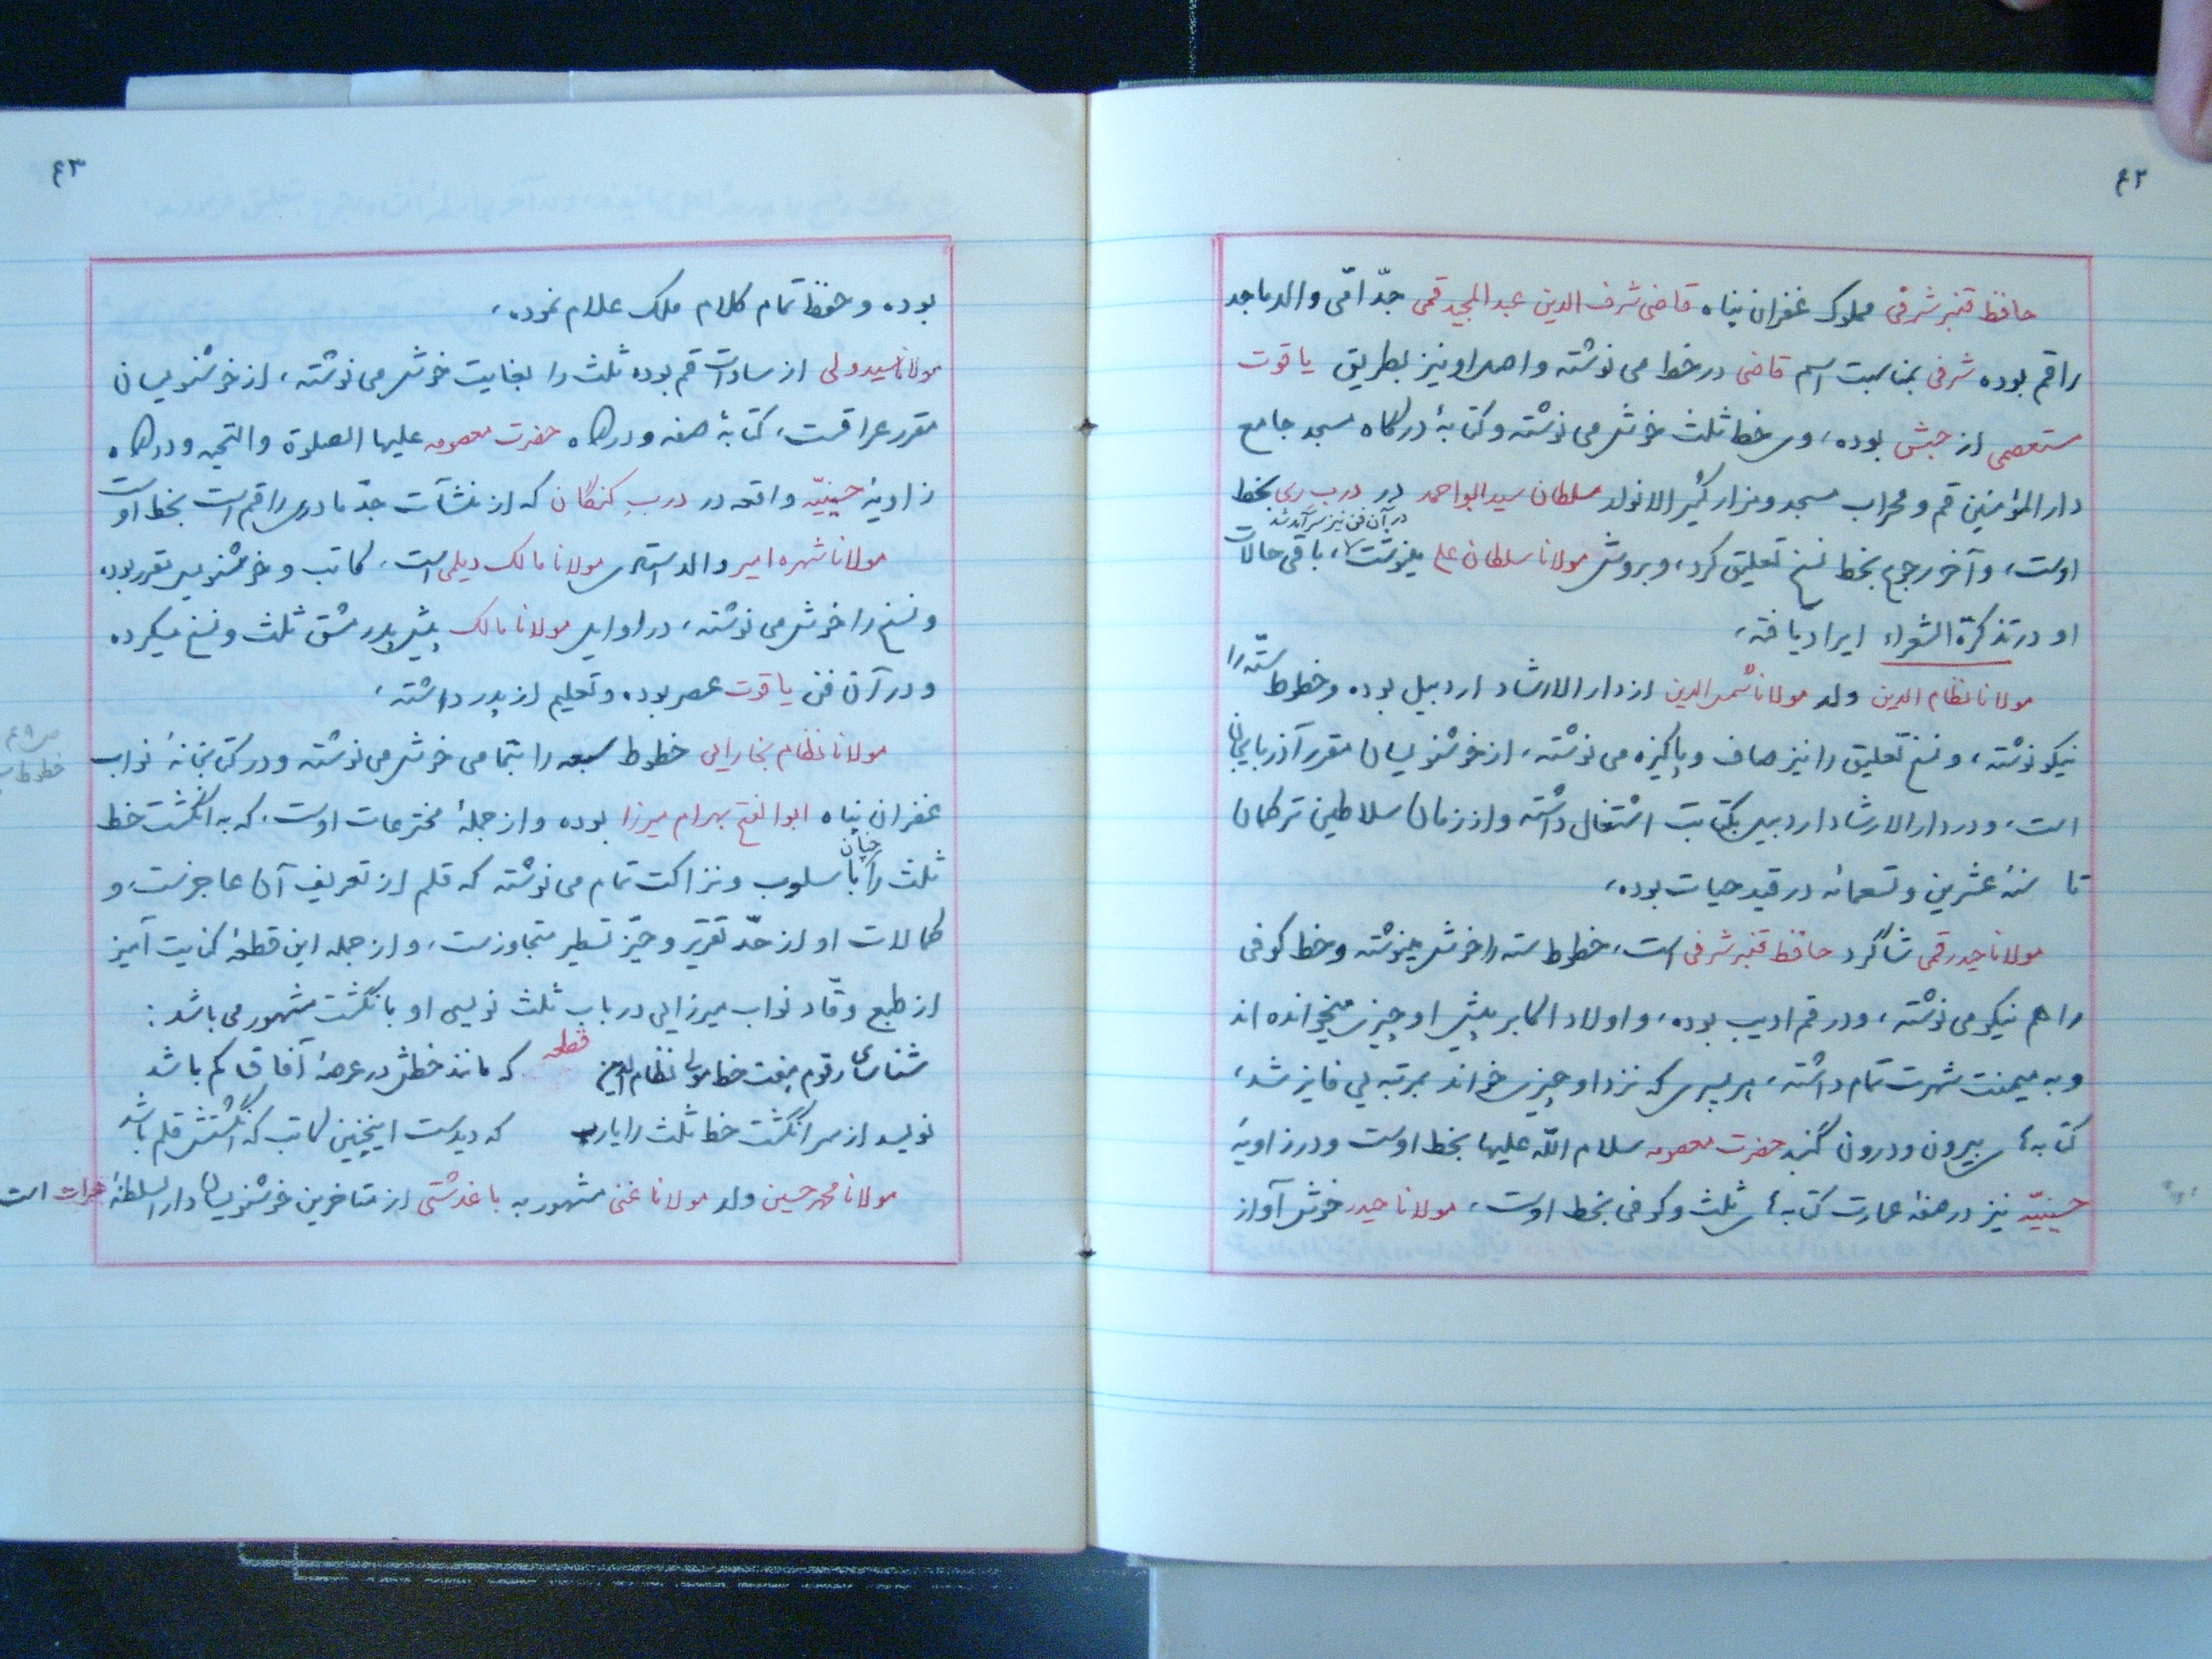 ۴۲
حافظ قنبر شرفی مملوک غفران پناه قاضی شرف الدین عبد المجید قمی جدّ امّی والد ماجد
راقم بوده شرفی بمناسبت اسم قاضی در خط می نوشته و اصل او نیز بطریق یاقوت
مستعصمی از حبش بوده، وی خط ثلث خوش می نوشته و کتابهٔ درگاه مسجد جامع
دار المؤمنین قم و محراب مسجد و مزار کثیر الانوار سلطان سید ابواحمد در درب ری بخط
اوست، و آخر رجوع بخط نسخ تعلیق کرد، و بروش مولانا سلطان علی مینوشت در آن فن نیز سرآمد شد، باقی حالات
او در تذکرة الشعراء ایراد یافته،
مولانا نظام الدین ولد مولانا شمس الدین از دار الارشاد اردبیل بوده و خطوط ستّه را
نیکو نوشته، و نسخ تعلیق را نیز صاف و پاکیزه می نوشته، از خوشنویسان مقرر آذربایجان
است، و در دار الارشاد اردبیل بکتابت اشتغال داشته و از زمان سلاطین ترکمان
تا سنهٔ عشرین و تسعمائه در قید حیات بوده،
مولانا حیدر قمی شاگرد حافظ قنبر شرفی است، خطوط سته را خوش مینوشته و خط کوفی
را هم نیکو می نوشته، و در قم ادیب بوده، و اولاد اکابر پیش او چیزی میخوانده اند
و به میمنت شهرت تمام داشته، هر پسری که نزد او چیزی خواند بمرتبه یی فایز شد،
کتابهٔ بیرون و درون گنبد حضرت معصومه سلام اللّه علیها بخط اوست و در زاویهٔ
حسینیّه نیز در صفهٔ عمارت کتابهٔ ثلث و کوفی بخط اوست، مولانا حیدر خوش آواز
۴۳
بوده و حفظ تمام کلام ملک علام نموده،
مولانا سید ولی از سادات قم بوده ثلث را بغایت خوش می نوشته، از خوشنویسان
مقرر عراقست، کتابهٔ صفه و درگاه حضرت معصومه علیها الصلوة والتحیه و درگاه
زاویهٔ حسینیّه واقعه در درب کنکان که از منشآت جدّ مادری راقم است بخط اوست
مولانا شهره امیر والد استاد مولانا مالک دیلمی است، کاتب و خوشنویس مقرر بوده
و نسخ را خوش می نوشته، در اوایل مولانا مالک پیش پدر مشق ثلث و نسخ میکرده
و در آن فن یاقوت عصر بوده و تعلیم از پدر داشته،
مولانا نظام بخارایی خطوط سبعه را بتمامی خوش می نوشته و در کتابخانهٔ نواب
غفران پناه ابوالفتح بهرام میرزا بوده و از جملهٔ مخترعات اوست، که به انگشت خط
ثلث را چنان باسلوب و نزاکت تمام می نوشته که قلم از تعریف آن عاجزست، و
کمالات او از حدّ تقریر و حیّز تسطیر متجاوزست، و از جمله این قطعهٔ کنایت آمیز
از طبع وقّاد نواب میرزایی در باب ثلث نویسی او بانگشت مشهور می باشد :
قطعه
شناسای رقوم هفت خط مولی نظام الدین که مانند خطش در عرصهٔ آفاق کم باشد
نویسد از سر انگشت خط ثلث را یارب که دیدست اینچنین کاتب که انگشتش قلم باشد
مولانا محمد حسین ولد مولانا غنی مشهور به باغدشتی از متاخرین خوشنویسان دار السلطنهٔ هرات است